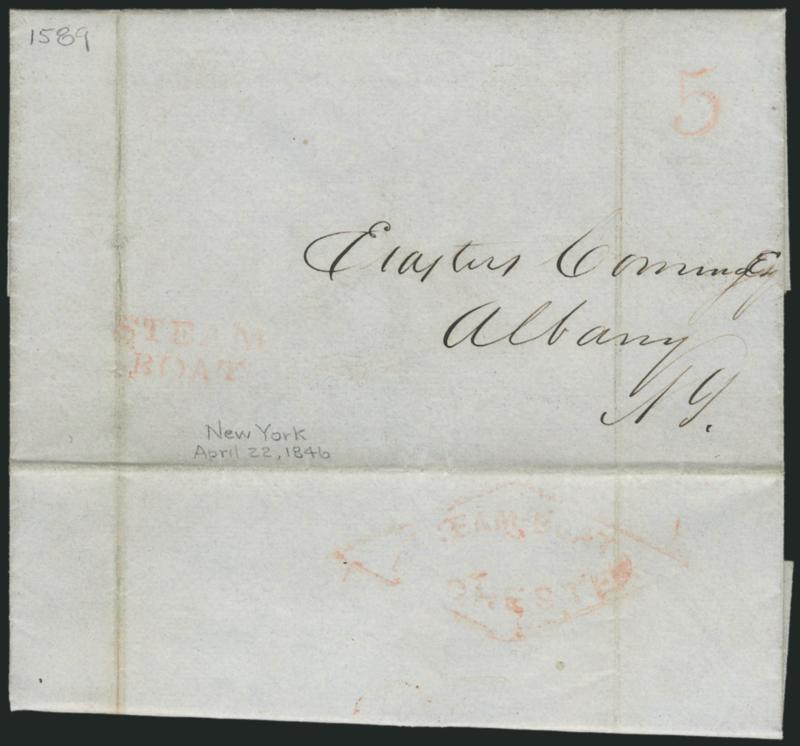 1589
5
Erastus Corning Esq
Albany
N Y.
STEAM
BOAT
New York
April 22, 1846
EAM BOAT
CHESTE